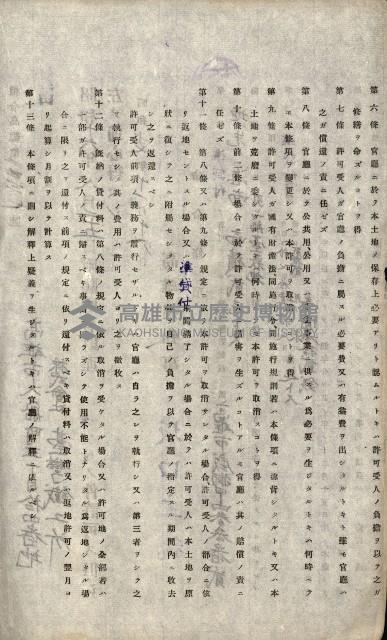 第六條 官廳ニ於テ本土地ノ保存上必要アリト認ムルトキハ許可受人ノ負擔ヲ以テ之ガ
修繕ヲ命ズルコトヲ得
第七條 許可受人ガ官廳ノ負擔ニ屬スル必要費又ハ有益費ヲ出シタルトキト雖モ官廳ハ
之ガ償還ノ責ニ任ゼズ
第八條 官廳ニ於テ公共用、公用又ハ
事業ニ供スル爲必要ヲ生ジタルトキハ何時ニテ
モ本條項ヲ變更シ又ハ本許可ヲ取消スコトヲ得
第九條 許可受人ガ國有財產法、同施行令、同施行規則若ハ本條項ニ違背シタルトキ又ハ本
土地ヲ荒廢ニ委シタルトキハ何時ニテモ本許可ヲ取消スコトヲ得
第十條 前二條ノ場合ニ於テ許可受人ニ損害ヲ生ズルコトアルモ官廳ハ其ノ賠償ノ責ニ
任ゼズ
第十一條 第八條又ハ第九條ノ規定ニ依リ本許可ヲ取消サレタル場合許可受人ノ都合ニ依
リ返地セントスル場合又ハ準貸付期間滿了シタル場合ニ於テハ許可受人ハ本土地ヲ原
狀ニ復シ之ヘ附屬セシメタル物ハ自己ノ負擔ヲ以テ官廳ノ指定スル期間內ニ收去
シ之ヲ返還スベシ
許可受人前項ノ義務ヲ履行セザルトキハ官廳ハ自ラ之ヲ執行シ又ハ第三者ヲシテ之
ヲ執行セシメ其ノ費用ハ許可受人ヨリ之ヲ徵收ス
第十二條 既納ノ貸付料ハ第八條ノ規定ニ依ル取消ヲ受ケタル場合又ハ許可地ノ全部若ハ
一部ガ許可受人ノ責ニ歸スベキ事由ニ因ラズシテ使用不能トナリタル爲返地シタル場
合ニ限リ之ヲ還付ス前項ノ規定ニ依リ還付スベキ貸付料ハ取消又ハ返地許可ノ翌月ヨ
リ起算シ月割ヲ以テ計算ス
第十三條 本條項ニ關シ解釋上疑義ヲ生ジタルトキハ官廳ノ解釋ニ依ルベシ
高雄市立歷史博物館
KAOHSIUNG MUSEUM OF HISTORY